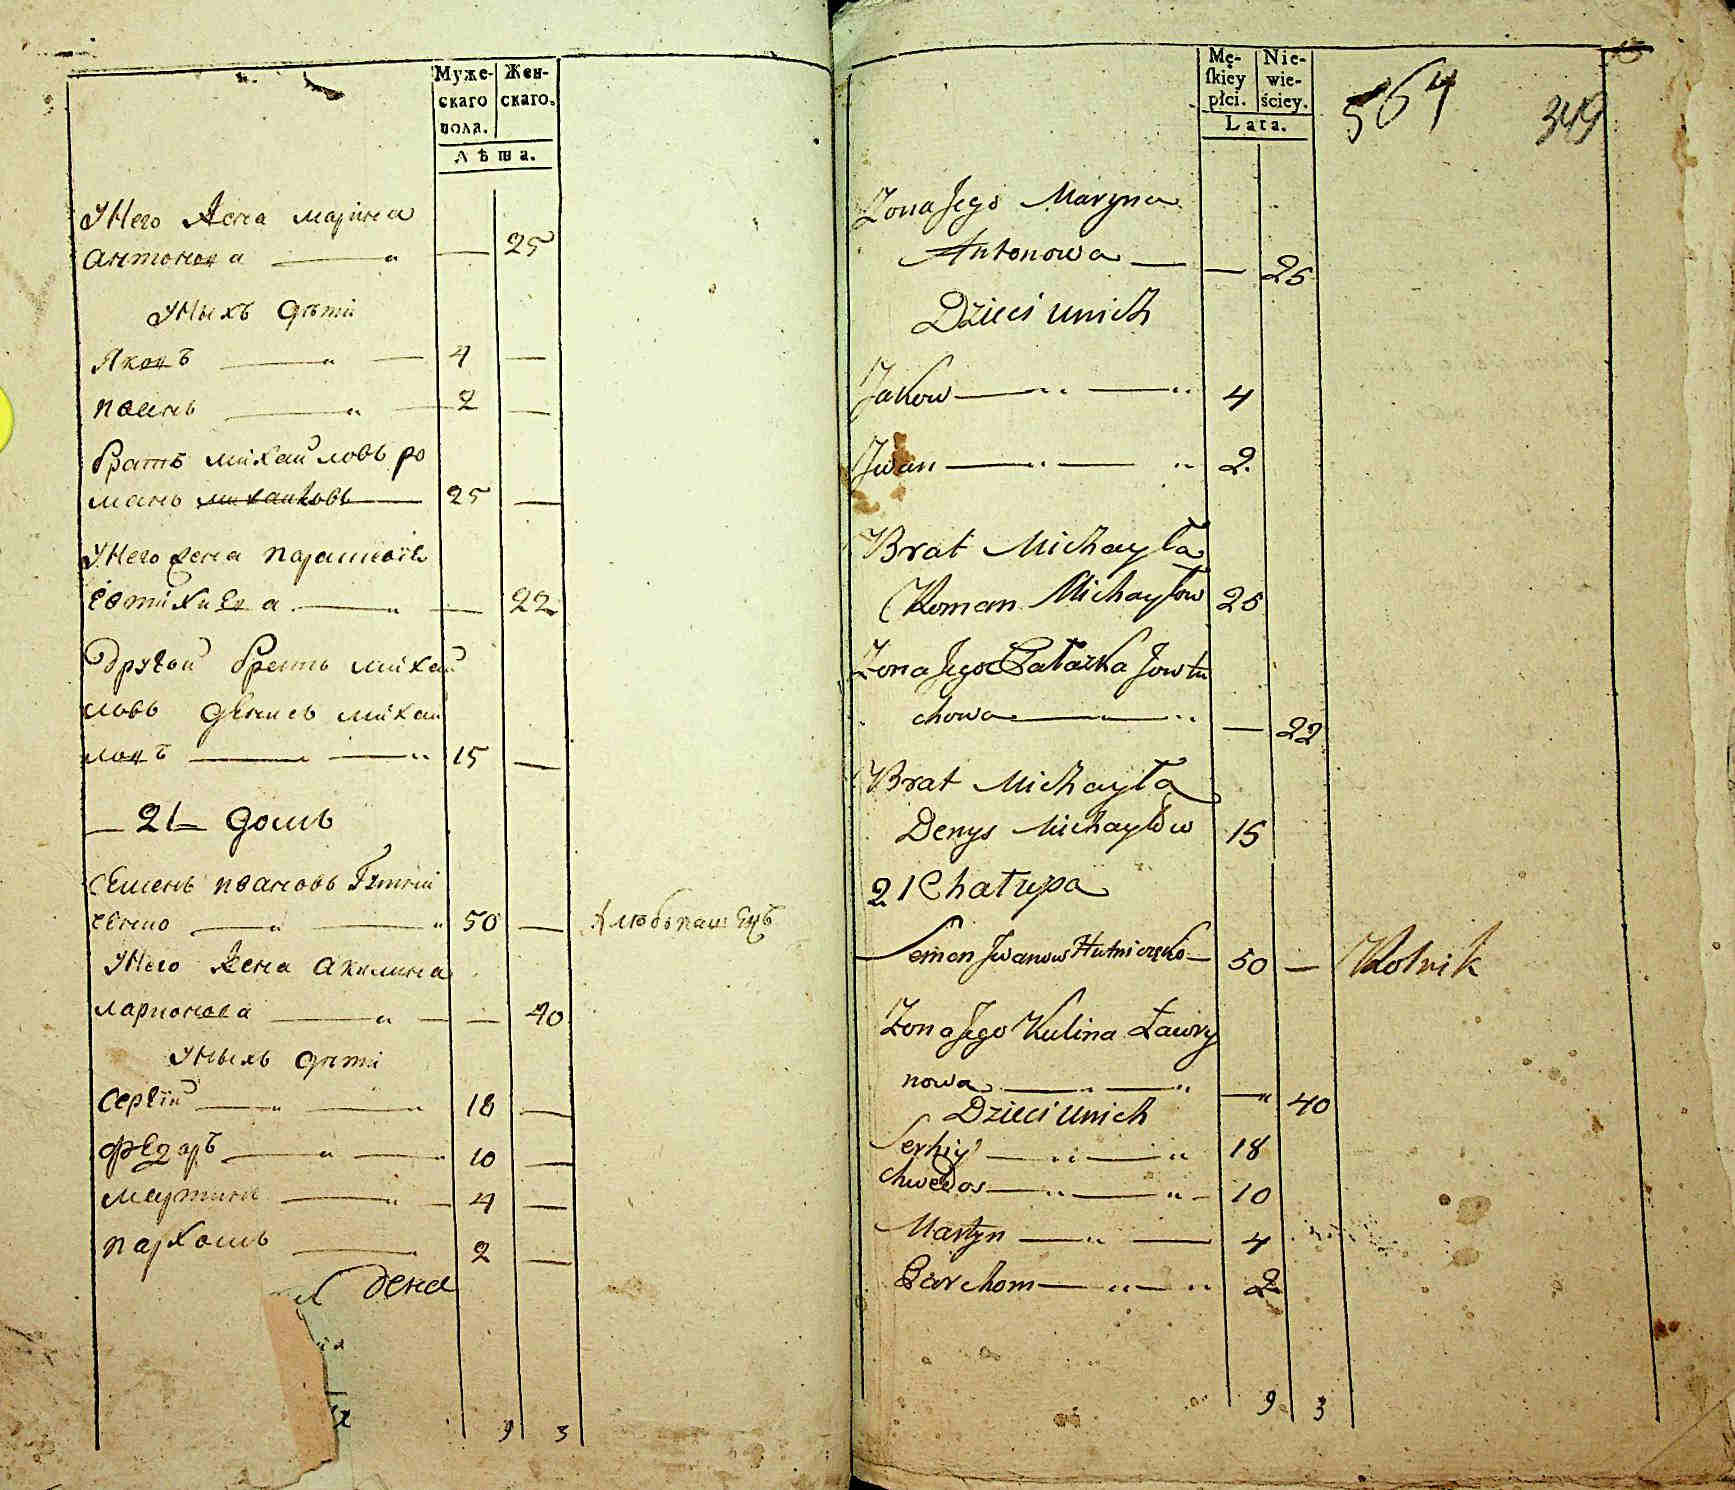 Муже-
скаго
пола.
Жен-
скаго.
Лѣта.
У Него Жена марина
антонова 25
У Ныхъ дѣти
Яковъ 4
иванъ 2
братъ михайловъ ро
манъ михайловъ 25
У Него жена
Евтихиева 22
Другой братъ михай
ловъ денисъ михай
ловъ 15
21 домъ
Семенъ ивановъ
ченко 50 хлѣбопашецъ
У Него Жена акилина
ларионова 40
У Ныхъ дѣти
Сергiй 18
Федоръ 10
мартинъ 4
пархомъ 2
9 3
Mę-
skiey
płci.
Nie-
wie-
ściey.
Lata.
564
349
Zona Jego Maryna
Antonowa 25
Dzieci unich
Jakow 4
Jwan 2
Brat Michayła
Roman Michayłow 25
Zona Jego Pałażka Jowtu
chowa 22
Brat Michayła
Denys Michayłow 15
21 Chałupa
Semen Jwanow Hutniczęko 50 Rolnik
Zona Jego Kulina Ławry
nowa 40
Dzieci unich
Serhiy 18
Chwedor 10
Martyn 4
Parchom 2
9 3